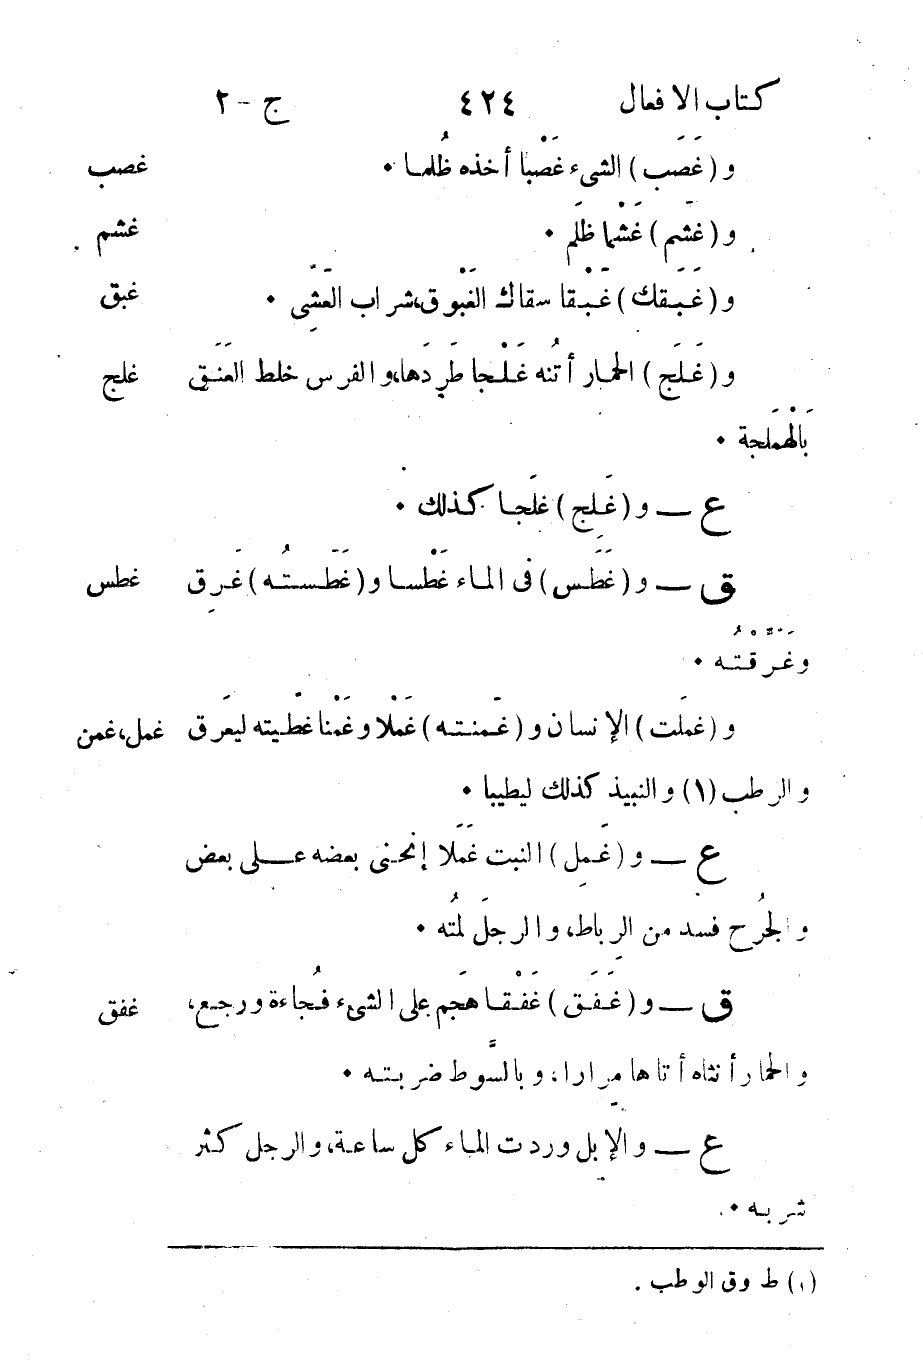 كتاب الافعال ٤٢٤ ج - ٢
و (غَصَب) الشىء غَصْبًا أخذه ظُلما • غصب
و (غَشَم) غَشْما ظلَم • غشم
و (غَبَقك) غَبْقا سقاك الغَبوق، شراب العَشّى • غبق
و (غَلَج) الحمار أتُنه غَلْجا طَردَها، والفرس خلط العَنَق غلج
بالْهَملَجة •
ع — و (غَلِج) غلَجا كذلك •
ق — و (غَطَس) فى الماء غَطْسا و (غَطَستُه) غَرِق غطس
وغَرَّقْتُه •
و (غمَلت) الإنسان و (غَمنته) غَمْلا وغَمْنا غطّيته ليَعرَق غمل، غمن
والرطب (١) والنبيذ كذلك ليطيبا •
ع — و (غَمِل) النبت غَمَلا إنحنى بعضه على بعض
والجُرح فسد من الرباط، والرجلَ لمُته •
ق — و (غَفَق) غَفْقا هَجَم على الشىء فُجاءة ورجع، غفق
والحمار أنثاه أتاها مِرارا، وبالسَّوط ضربته •
ع — والإبل وردت الماء كل ساعة، والرجل كثر
شربه •
(١) ط وق الوطب .